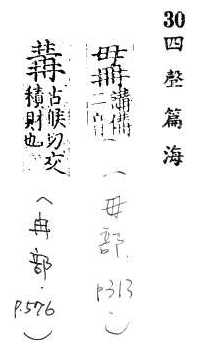 30四聲篇海
講備
二音
(毌部.p313)
古候切交
積財也
(冉部.p.576)